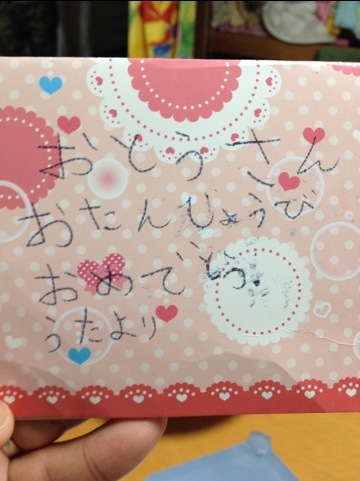 おとうさん
おたんじょうび
おめでとう.
うたより